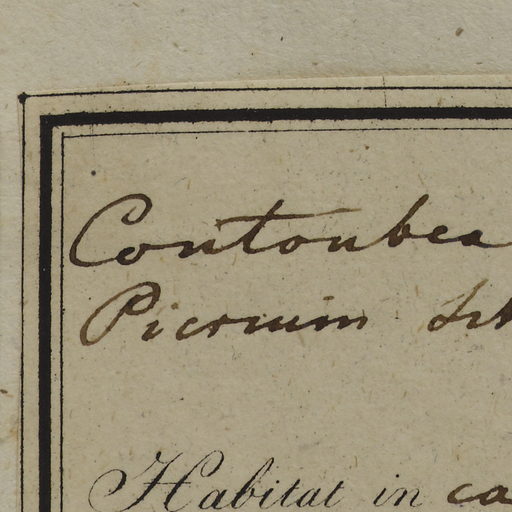 Contoubea
Picrium
Habitat in ca